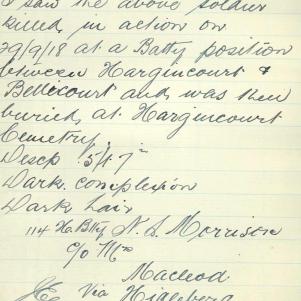 I saw the above soldier
killed in action on
29/9/18 at a Batty position
between Hargincourt &
Bellecourt and was then
buried at Hargincourt
Cemetry
Descp 5ft 7in
Dark complexion
Dark hair
114 How Batty N. L. Morrison
c/o Mrs
Macleod
Via